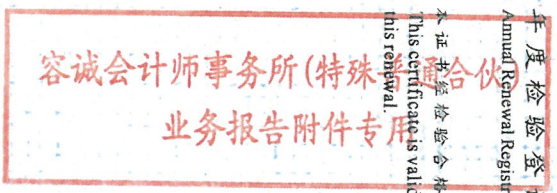 容诚会计师事务所(特殊普通合伙
业务报告附件专用
年度检验登
Annual Renewal Regist
本证书经检验合格
This certificate is valid
this renewal.